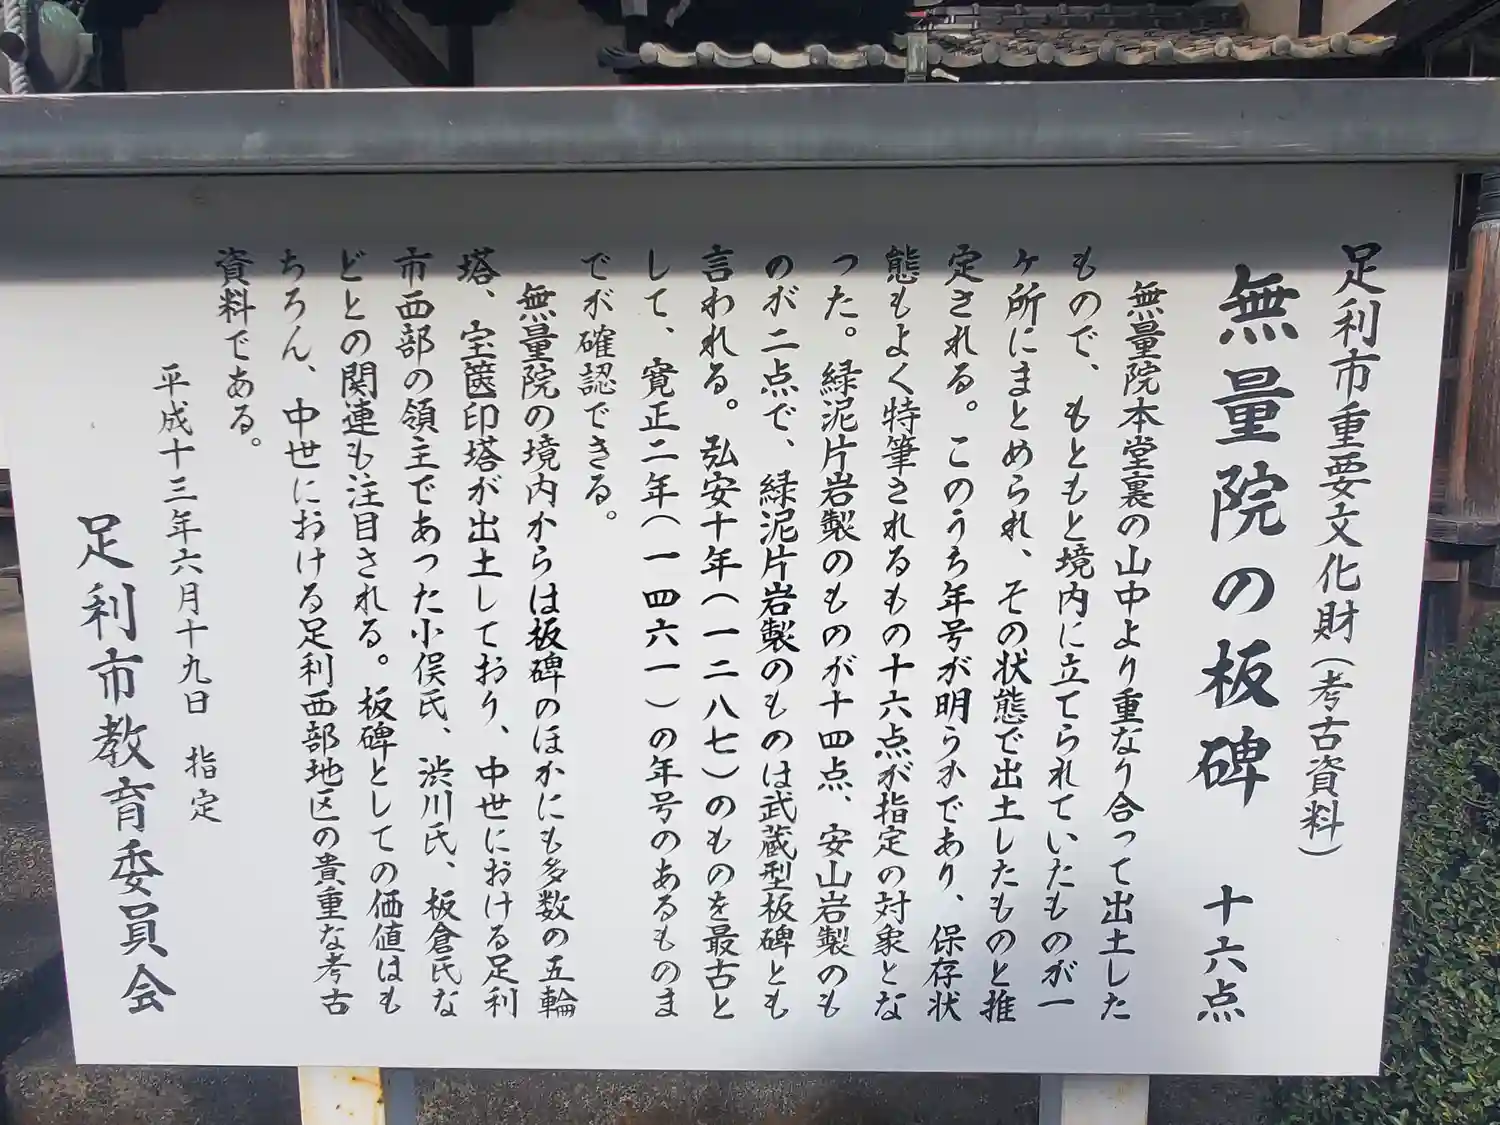 足利市重要文化財(考古資料)
無量院の板碑 十六点
無量院本堂裏の山中より重なり合って出土した
もので、もともと境内に立てられていたものが一
ヶ所にまとめられ、その状態で出土したものと推
定される。このうち年号が明らかであり、保存状
態もよく特筆されるもの十六点が指定の対象とな
った。緑泥片岩製のものが十四点、安山岩製のも
のが二点で、緑泥片岩製のものは武蔵型板碑とも
言われる。弘安十年(一二八七)のものを最古と
して、寛正二年(一四六一)の年号のあるものま
でが確認できる。
無量院の境内からは板碑のほかにも多数の五輪
塔、宝篋印塔が出土しており、中世における足利
市西部の領主であった小俣氏、渋川氏、板倉氏な
どとの関連も注目される。板碑としての価値はも
ちろん、中世における足利西部地区の貴重な考古
資料である。
平成十三年六月十九日 指定
足利市教育委員会